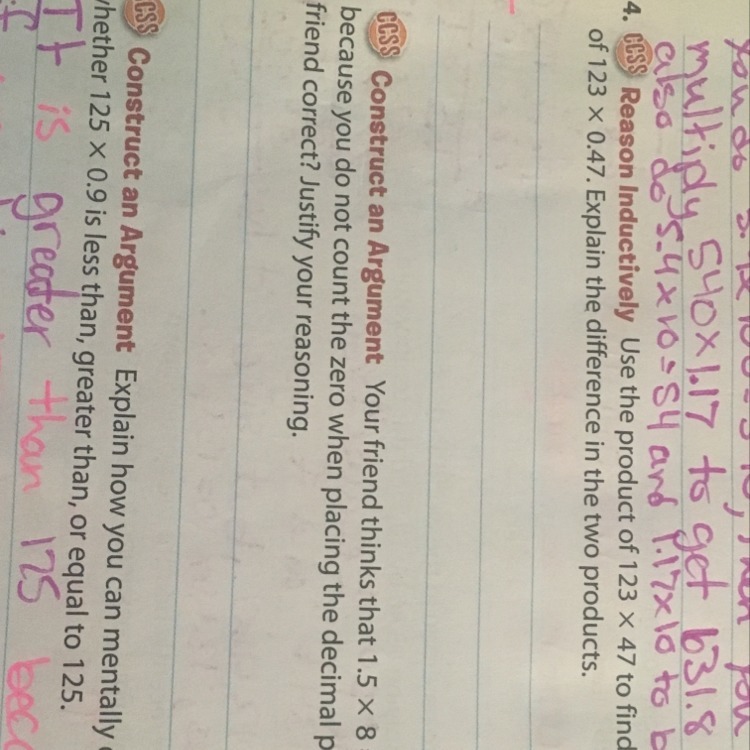 multiply 540x1.17 to get 631.8
also do 5.4x10=54 and 1.17x10 to
4. CCSS Reason Inductively Use the product of 123 × 47 to find
of 123 × 0.47. Explain the difference in the two products.
CCSS Construct an Argument Your friend thinks that 1.5 × 8
because you do not count the zero when placing the decimal
friend correct? Justify your reasoning.
CCSS Construct an Argument Explain how you can mentally
whether 125 × 0.9 is less than, greater than, or equal to 125.
It is greater than 125